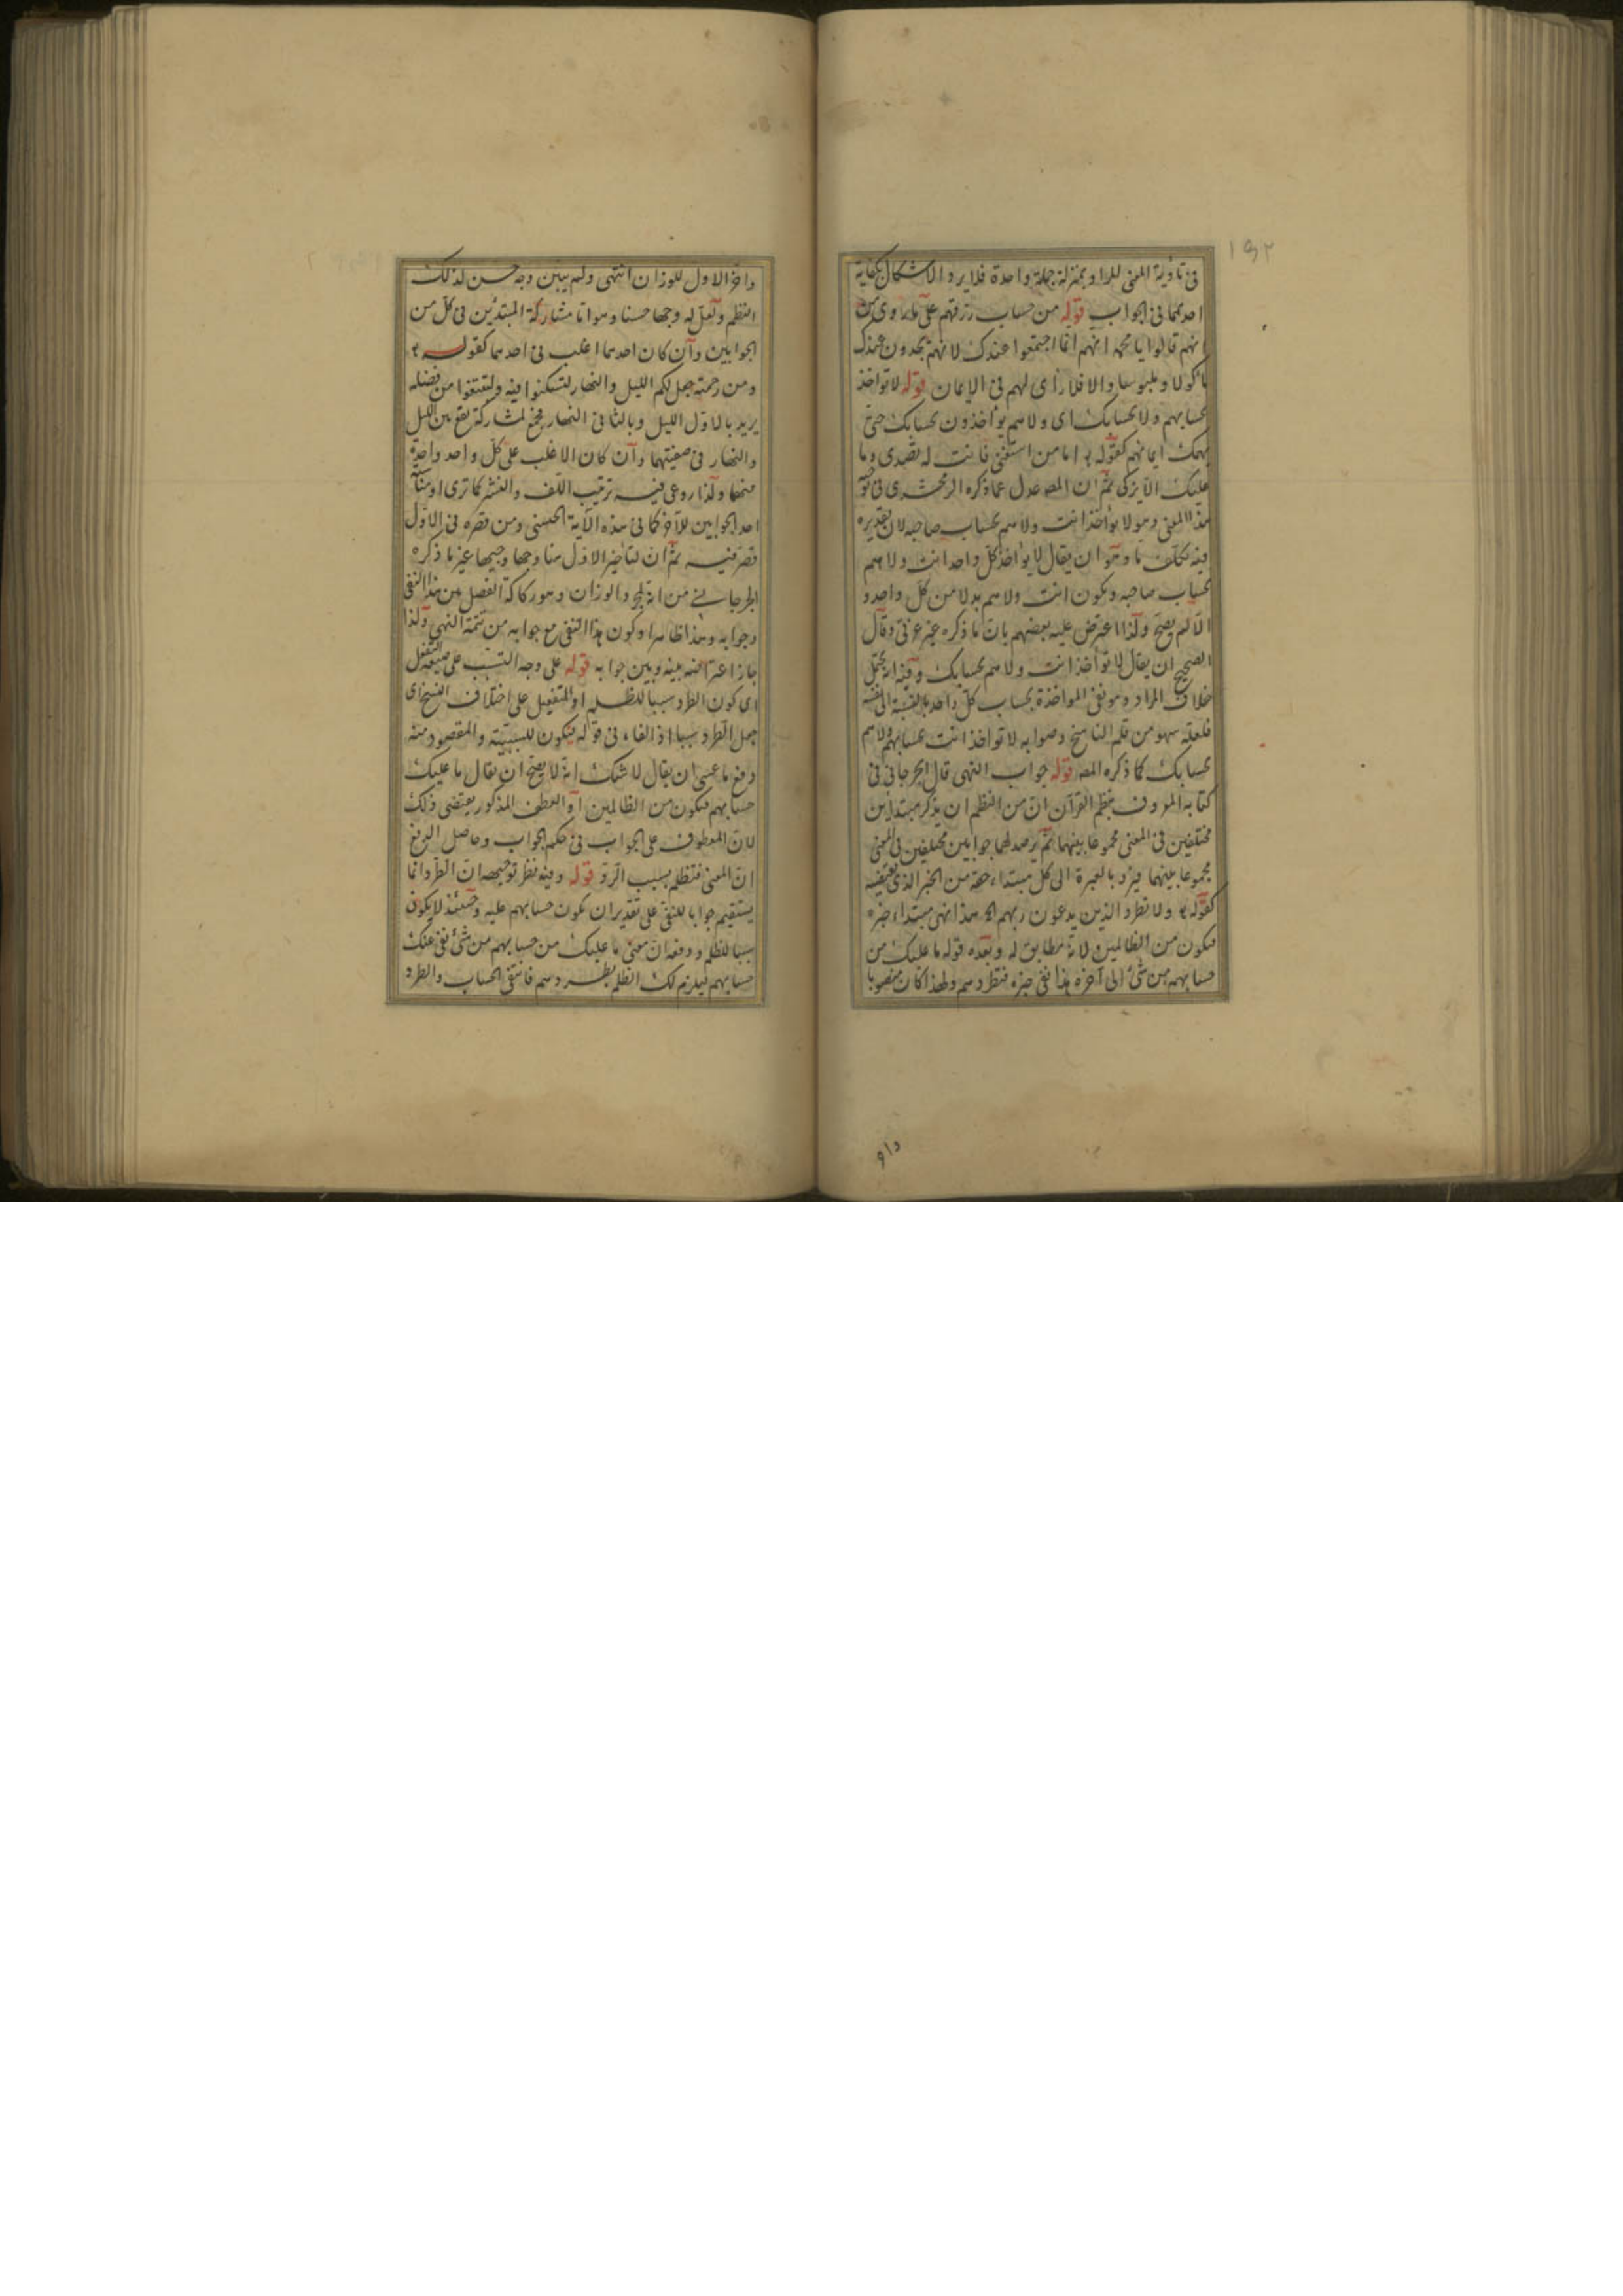 ١٩٢
فى تأدية المعنى المراد بمنزلة جملة واحدة فلا يرد الاشكال بكفاية
احديهما فى الجواب قوله من حساب رزقهم على ما روى من
انهم قالوا يا محمد انهم انما اجتمعوا عندك لانهم يجدون عندك
مأكولا وملبوسا والا فلا رأى لهم فى الايمان قوله لا تؤاخذ
بحسابهم ولا بحسابك اى ولا هم يؤاخذون بحسابك حتى
يهمك ايمانهم كقوله اما من استغنى فانت له تصدى وما
عليك الا يزكى ثم ان المصه عدل عما ذكره الزمخشرى فى
هذا المعنى وهو لا يؤاخذ انت ولا هم بحساب صاحبه لان تقديره
فيه تكلف ما وهو ان يقال لا يؤاخذ كل واحد انت ولا هم
بحساب صاحبه ويكون انت ولا هم بدلا من كل واحد و
الا لم يصح ولذا اعترض عليه بعضهم بان ما ذكره غير عربى وقال
الصحيح ان يقال لا تؤاخذ انت ولا هم بحسابك وفيه انه يحتمل
خلاف المراد وهو نفى المؤاخذة بحساب كل واحد بالنسبة الى نفسه
فلعله سهو من قلم الناسخ وصوابه لا تؤاخذ انت بحسابهم ولا هم
بحسابك كما ذكره المصه قوله جواب النهى قال الجرجانى فى
كتابه المعروف بنظم القرآن ان من النظم ان يذكر مبتداين
مختلفين فى المعنى مجموعا بينهما ثم يرصد لهما جوابين مختلفين فى المعنى
مجموعا بينهما فيرد بالعبرة الى كل مبتداء حقه من الخبر الذى يقتضيه
كقوله ولا تطرد الذين يدعون ربهم الخ هذا نهى مبتداء خبره
فتكون من الظالمين لانه مطابق له وبعده قوله ما عليك من
حسابهم من شئ الى آخره هذا نفى خبره فتطردهم ولهذا كان منصوبا
واخر
واخر الاول للوزان انتهى ولم يبين وجه حسن لذلك
النظم ولعل له وجها حسنا وهو اتا مشاركة المبتدئين فى كل من
الجوابين وان كان احدهما اغلب فى احدهما كقوله
ومن رحمته جعل لكم الليل والنهار لتسكنوا فيه ولتبتغوا من فضله
يريد بالاول الليل وبالثانى النهار فجمع لمشاركة تقع بين الليل
والنهار فى صفتيهما وان كان الاغلب على كل واحد واحدة
منهما ولذا روعى فيه ترتيب اللف والنشر كما ترى او
احد الجوابين للآخر كما فى هذه الآية الحسنى ومن قصره فى الاول
قصر فيه ثم ان لتاخير الاول هنا وجها وجيها غير ما ذكره
الجرجانى من انه لمجرد الوزان وهو ركاكة الفصل بين هذا النفى
وجوابه وهذا ظاهر او كون هذا النفى مع جوابه من تتمة النهى ولذا
جاز اعتراضه بينه وبين جوابه قوله على وجه التسبب على صيغة التفعل
اى كون الطرد سببا للظلم او التفعيل على اختلاف النسخ اى
جعل الطرد سببا اذ الفاء فى قوله فتكون للسببية والمقصود منه
دفع ما عسى ان يقال لا شك انه لا يصح ان يقال ما عليك
حسابهم فتكون من الظالمين او العطف المذكور يقتضى ذلك
لان المعطوف على الجواب فى حكم الجواب وحاصل الدفع
ان المعنى فتظلم بسبب الرد قوله وفيه نظر توجيهه ان الطرد انما
يستقيم جوابا للنفى على تقدير ان تكون حسابهم عليه وحينئذ لا يكون
سببا للظلم ودفعه ان معنى ما عليك من حسابهم من شئ نفى عنك
حسابهم فيلزم لك الظلم بطردهم فانتفى الحساب والطرد